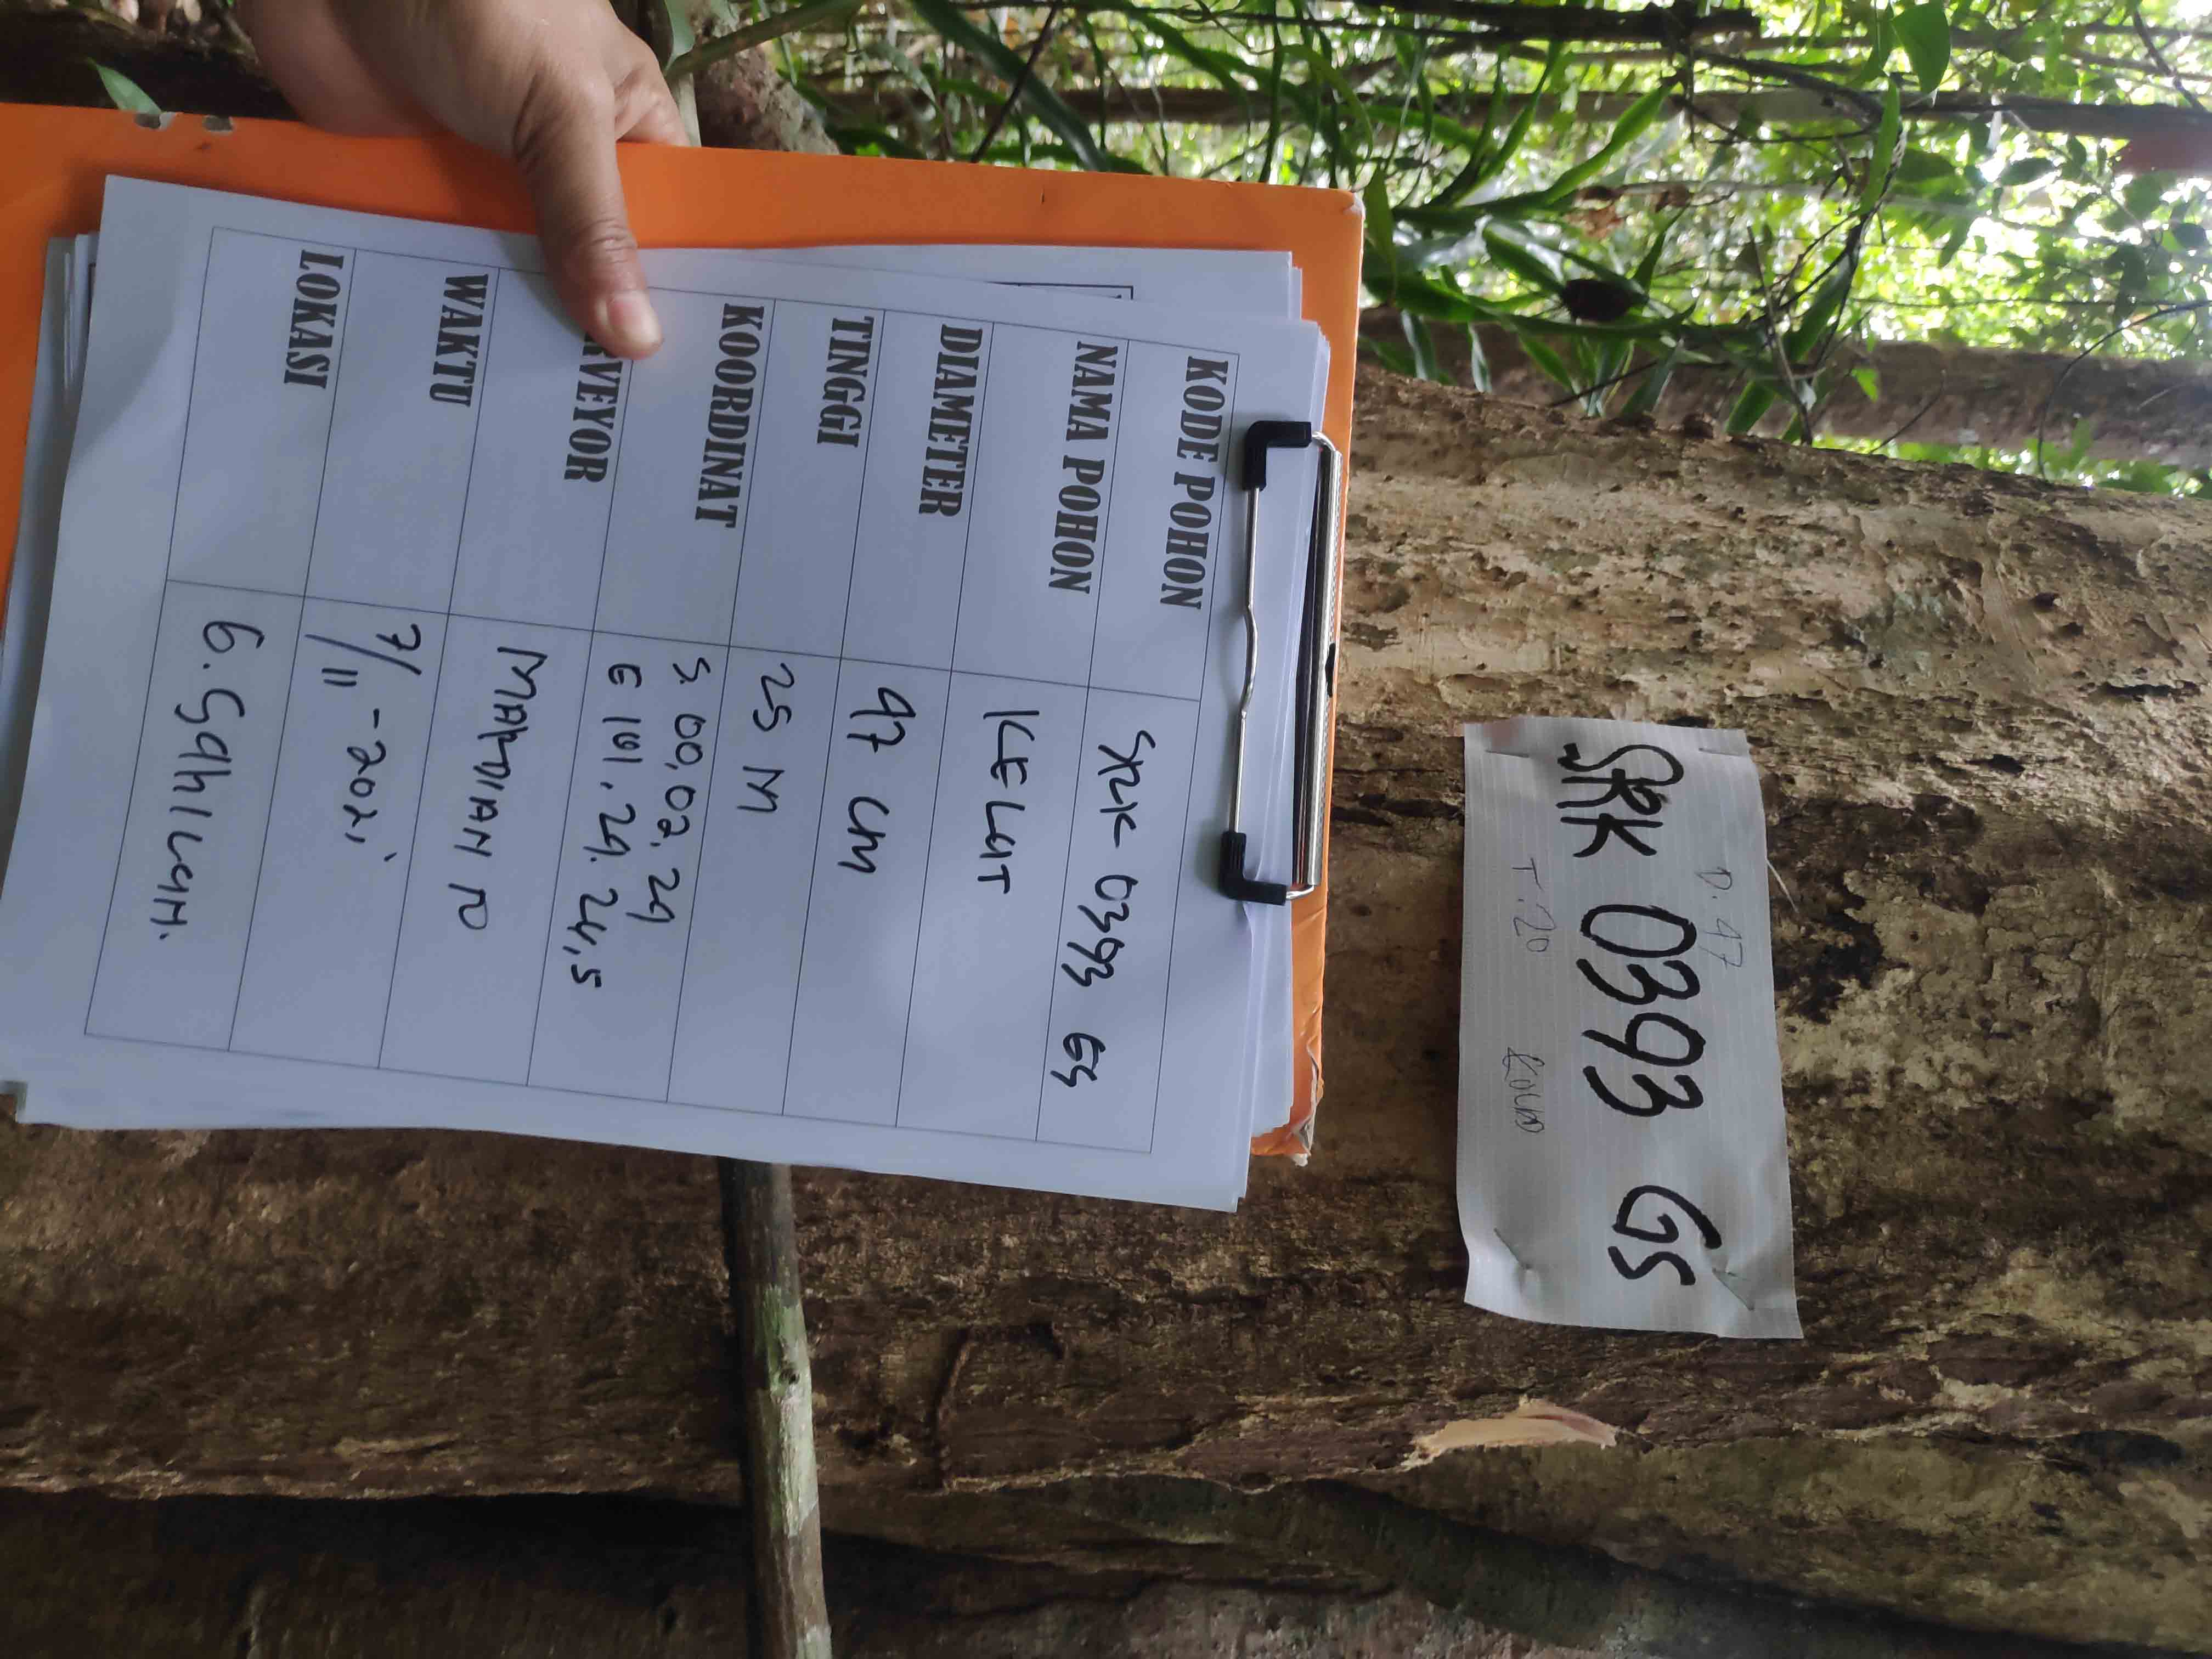 D. 97
SRK 0393 GS
T. 20
KODE POHON
SRK 0393 GS
NAMA POHON
KELAT
DIAMETER
97 CM
TINGGI
25 M
KOORDINAT
S. 00, 02, 29
E 101. 29. 24,5
RVEYOR
MARDIAN
WAKTU
7/11 - 2021
LOKASI
G. SAHILAN.